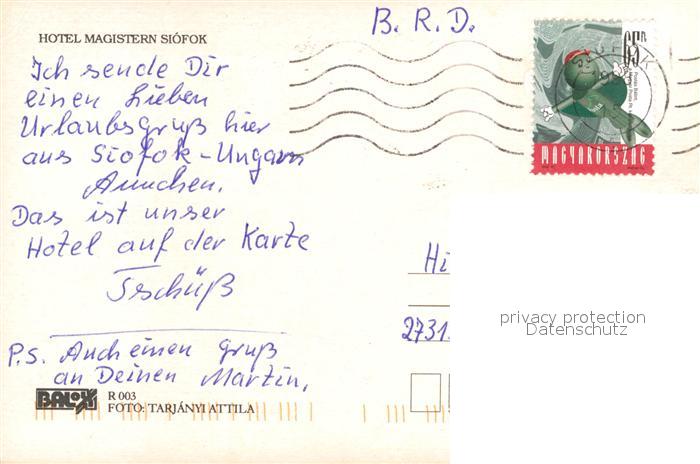 HOTEL MAGISTERN SIÓFOK
B. R. D.
65Ft
MAGYARORSZÁG
Ich sende Dir
einen Lieben
Urlaubsgruß hier
aus Siofok-Ungarn
Annchen.
Das ist unser
Hotel auf der Karte
Tschüß
P.S. Auch einen gruß
an Deinen Martin,
Hi
2731
privacy protection
Datenschutz
BALOX
R 003
FOTO: TARJÁNYI ATTILA